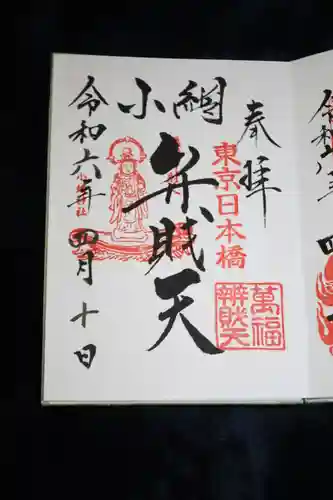 奉拝
東京日本橋
萬福
辨財天
小網
弁財天
令和六年四月十日